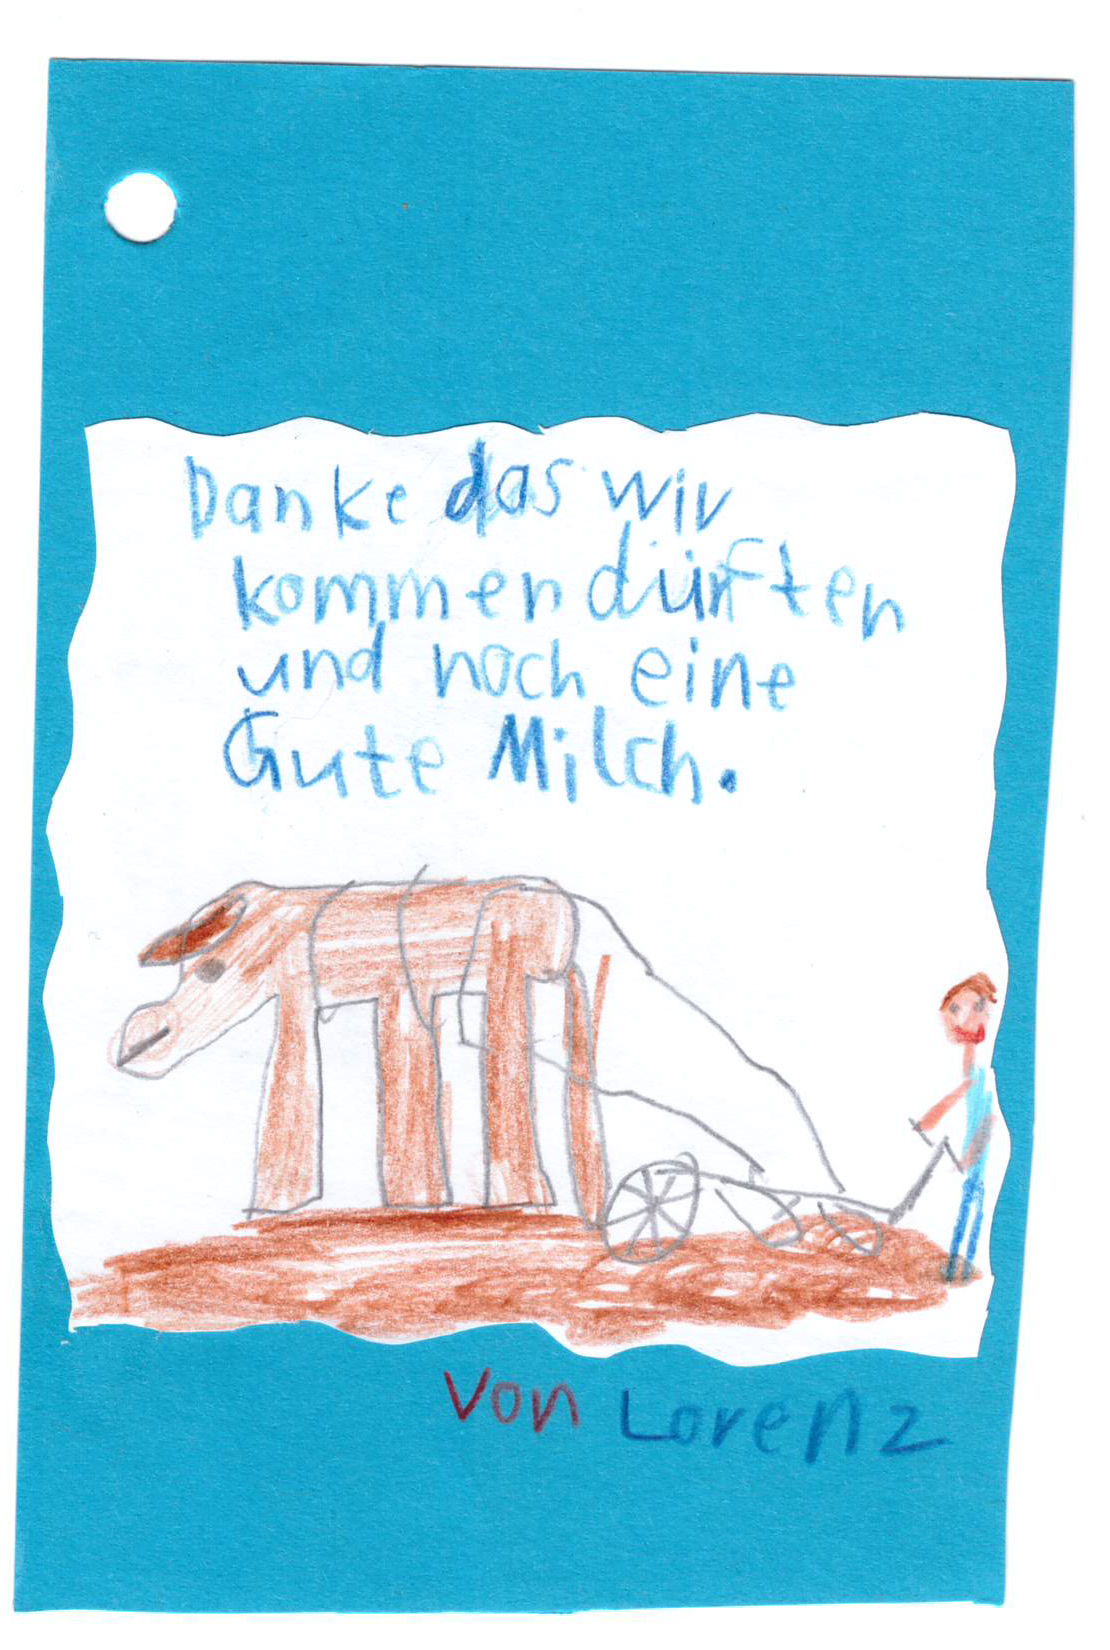 Danke das wir
kommen dürften
und noch eine
Gute Milch.
von Lorenz